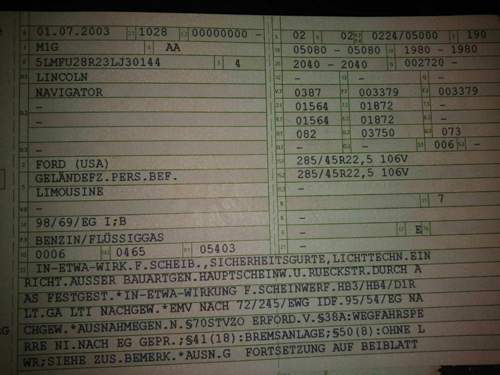 01.07.2003 1028 00000000 - 02 02 0224/05000 190
M1G AA 05080 - 05080 1980 - 1980
5LMFU28R23LJ30144 4 2040 - 2040 002720 -
LINCOLN - -
NAVIGATOR 0387 003379 003379
- 01564 01872 -
- 01564 01872 -
- 082 03750 073
- - - 006 -
FORD (USA) 285/45R22,5 106V
GELÄNDEFZ.PERS.BEF. 285/45R22,5 106V
LIMOUSINE -
- - 7
98/69/EG I;B -
BENZIN/FLÜSSIGGAS - E
0006 0465 05403 -
IN-ETWA-WIRK.F.SCHEIB.,SICHERHEITSGURTE,LICHTTECHN.EIN
RICHT.AUSSER BAUARTGEN.HAUPTSCHEINW.U.RUECKSTR.DURCH A
AS FESTGEST.*IN-ETWA-WIRKUNG F.SCHEINWERF.HB3/HB4/D1R
LT.GA LTI NACHGEW.*EMV NACH 72/245/EWG IDF.95/54/EG NA
CHGEW.*AUSNAHMEGEN.N.§70STVZO ERFORD.V.§38A:WEGFAHRSPE
RRE NI.NACH EG GEPR.;§41(18):BREMSANLAGE;§50(8):OHNE L
WR;SIEHE ZUS.BEMERK.*AUSN.G FORTSETZUNG AUF BEIBLATT